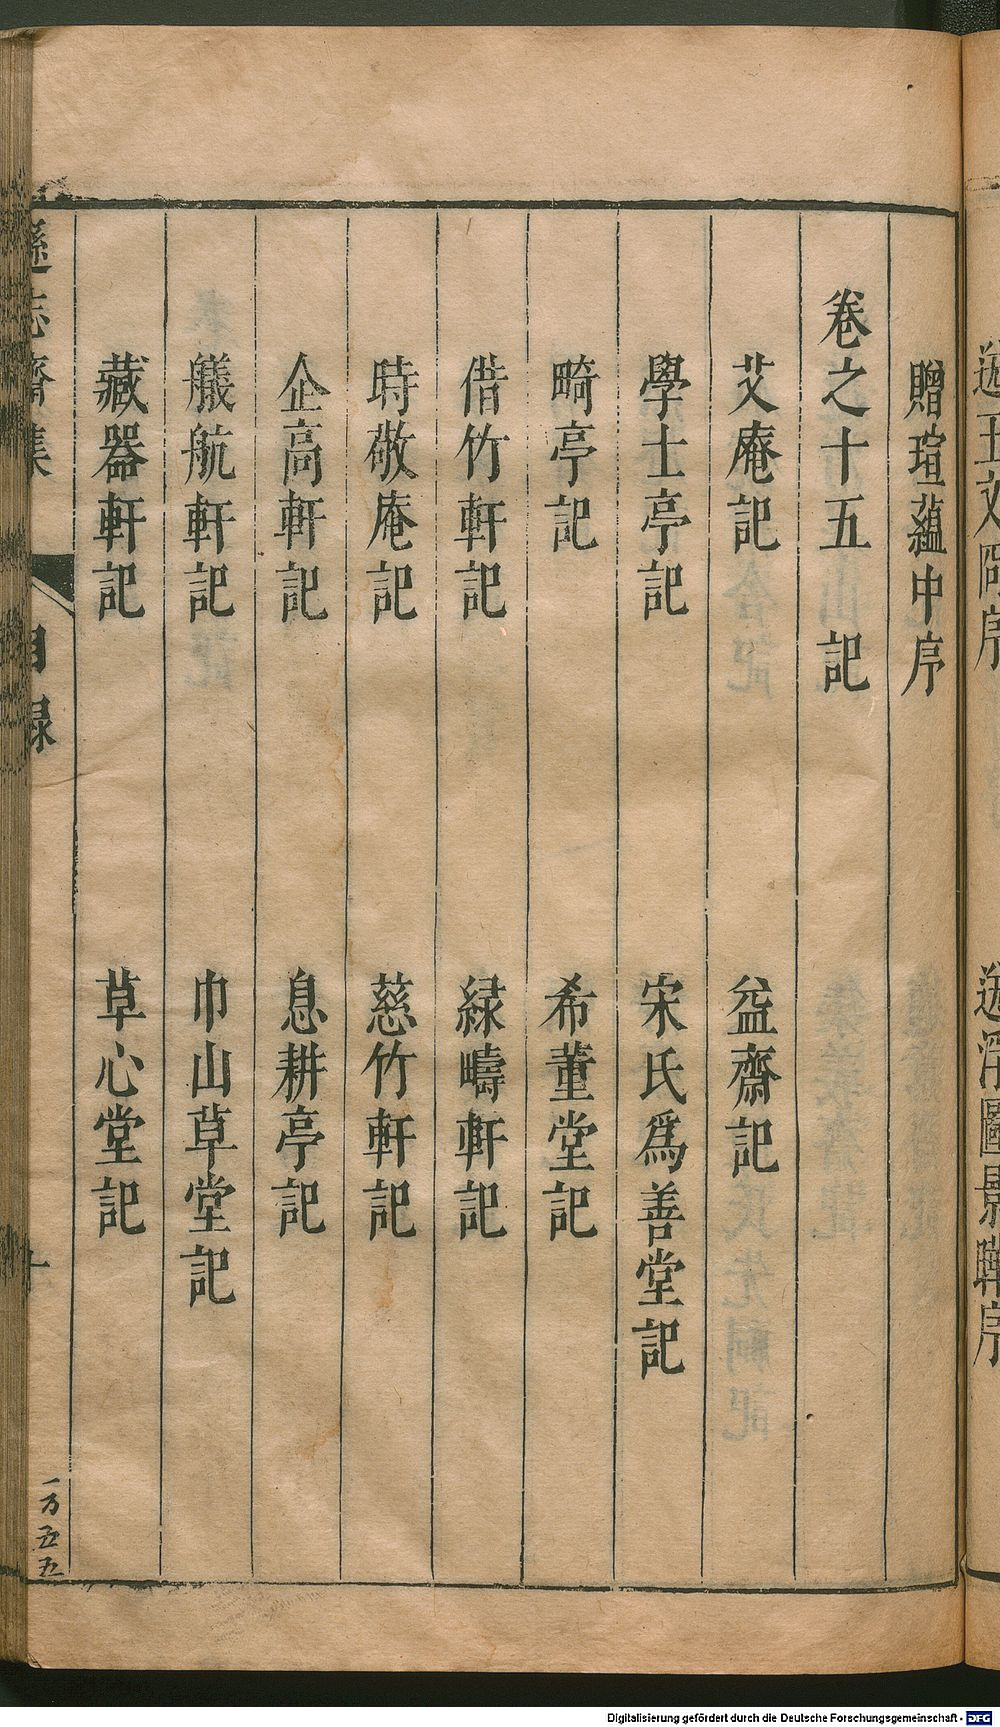 贈瑄蘊中序
卷之十五 記
艾庵記 益齋記
學士亭記 宋氏爲善堂記
畸亭記 希董堂記
借竹軒記 緑疇軒記
時敬庵記 慈竹軒記
企高軒記 息耕亭記
艤航軒記 巾山草堂記
藏器軒記 草心堂記
遜志齋集 目録
一万五五
Digitalisierung gefördert durch die Deutsche Forschungsgemeinschaft - DFG